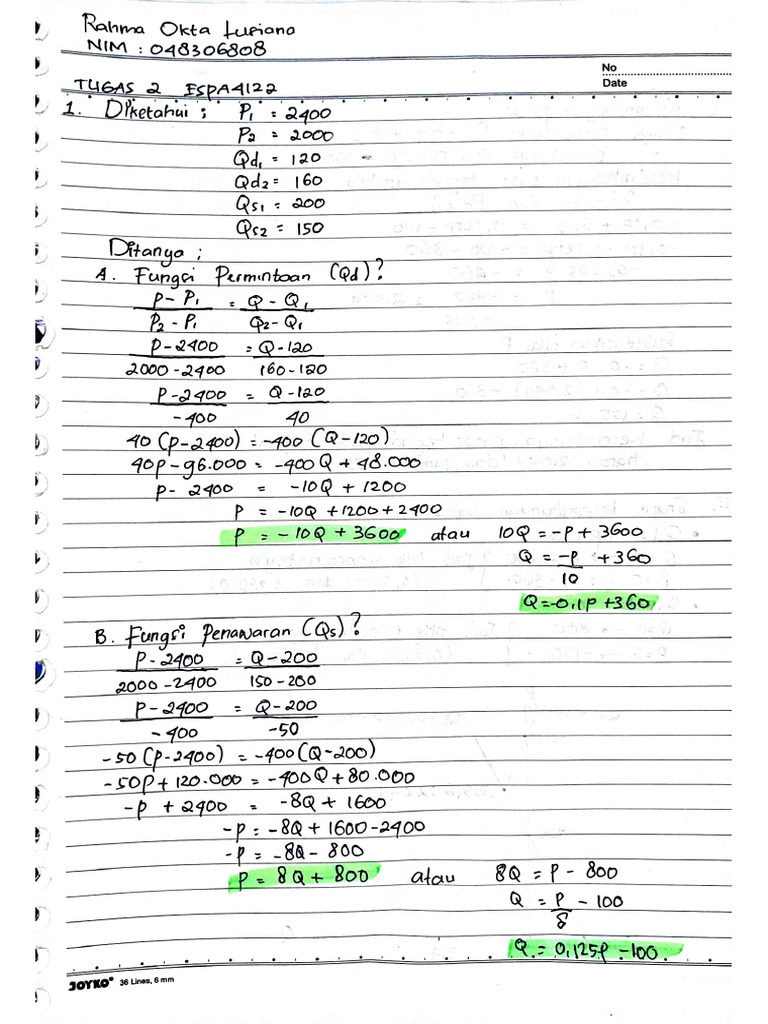 Rahma Okta Lusiana
NIM : 048306808
No
Date
TUGAS 2 ESPA4122
1. Diketahui : P1 = 2400
P2 = 2000
Qd1 = 120
Qd2 = 160
Qs1 = 200
Qs2 = 150
Ditanya :
A. Fungsi Permintaan (Qd)?
P - P1 = Q - Q1
P2 - P1 Q2 - Q1
P - 2400 = Q - 120
2000 - 2400 160 - 120
P - 2400 = Q - 120
-400 40
40 (P - 2400) = -400 (Q - 120)
40P - 96.000 = -400Q + 48.000
P - 2400 = -10Q + 1200
P = -10Q + 1200 + 2400
P = -10Q + 3600 atau 10Q = -P + 3600
Q = -P + 360
10
Q = -0,1P + 360
B. Fungsi Penawaran (Qs)?
P - 2400 = Q - 200
2000 - 2400 150 - 200
P - 2400 = Q - 200
-400 -50
-50 (P - 2400) = -400 (Q - 200)
-50P + 120.000 = -400Q + 80.000
-P + 2400 = -8Q + 1600
-P = -8Q + 1600 - 2400
-P = -8Q - 800
P = 8Q + 800 atau 8Q = P - 800
Q = P - 100
8
Q = 0,125P - 100
JOYKO 36 Lines, 6 mm